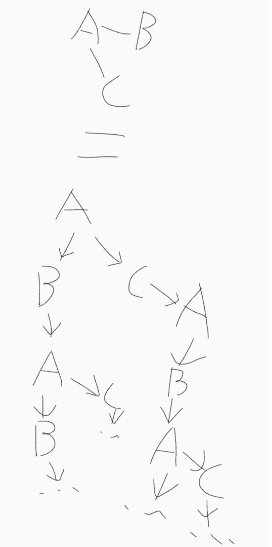 A B
C
=
A
B C A
A C B
B A C
...